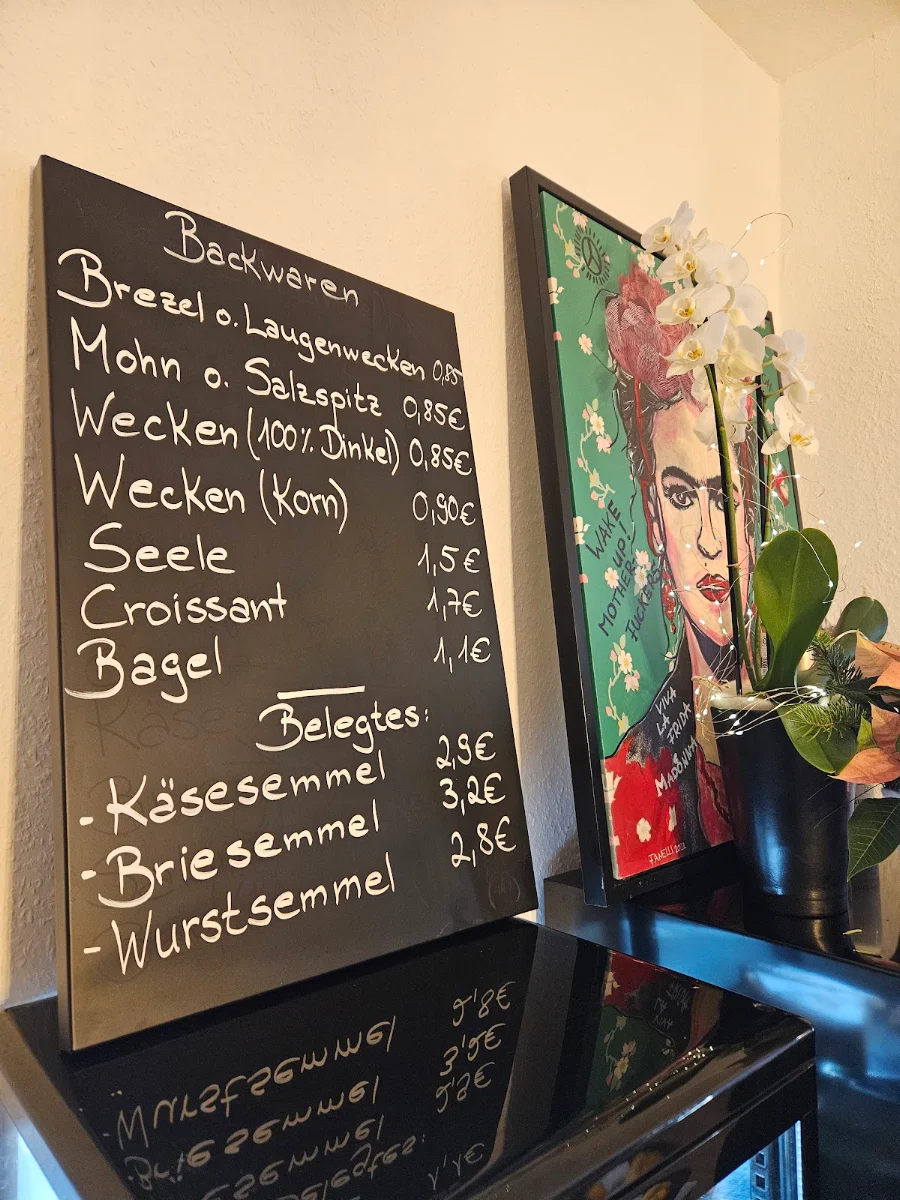 Backwaren
Brezel o. Laugenwecken 0,85
Mohn o. Salzspitz 0,85€
Wecken (100% Dinkel) 0,85€
Wecken (Korn) 0,90€
Seele 1,5€
Croissant 1,7€
Bagel 1,1€
Belegtes:
- Käsesemmel 2,9€
- Briesemmel 3,2€
- Wurstsemmel 2,8€
WAKE
UP!
MOTHER
FUCKERS
VIVA
LA
FRIDA
MADONNA